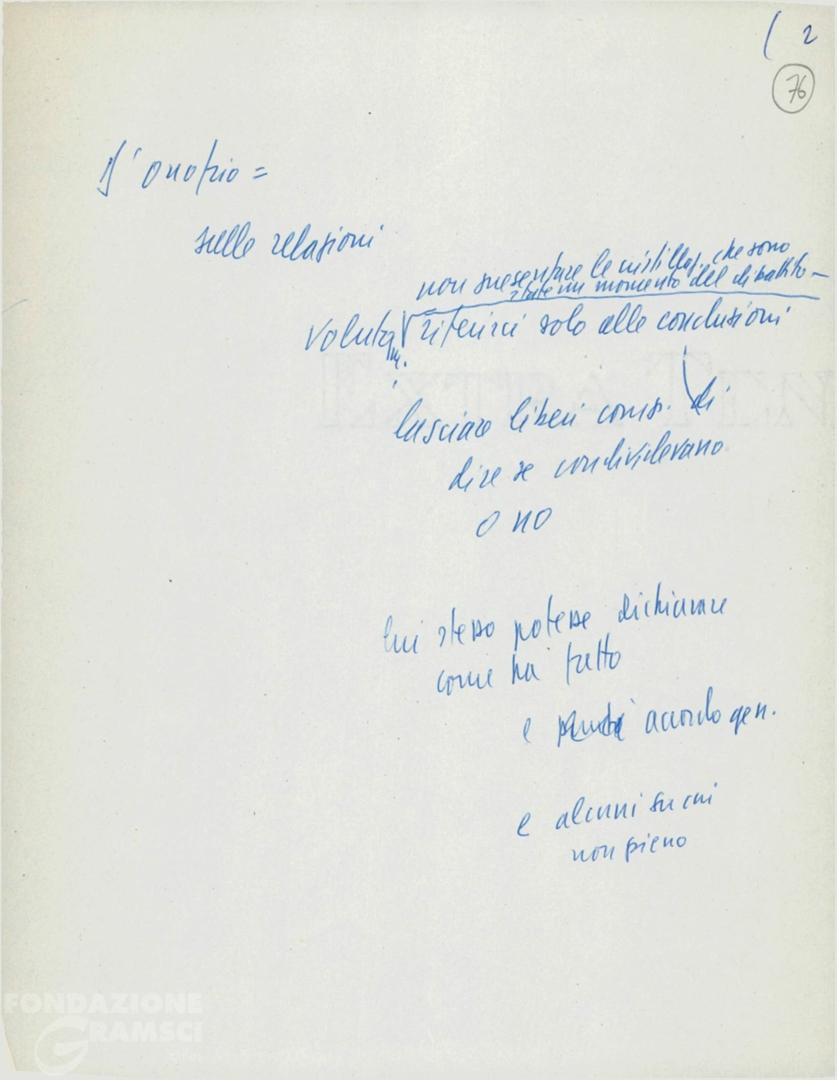 ( 2
76
D'Onofrio =
sulle relazioni
non presentare le, che sono
state un momento del dibattito –
voluta riferirci solo alle conclusioni
lasciare liberi comp. di
dire se condividevano
o no
lui stesso potesse dichiarare
come ha fatto
e accordo gen.
e alcuni su cui
non pieno
EXTRA
FONDAZIONE
GRAMSCI